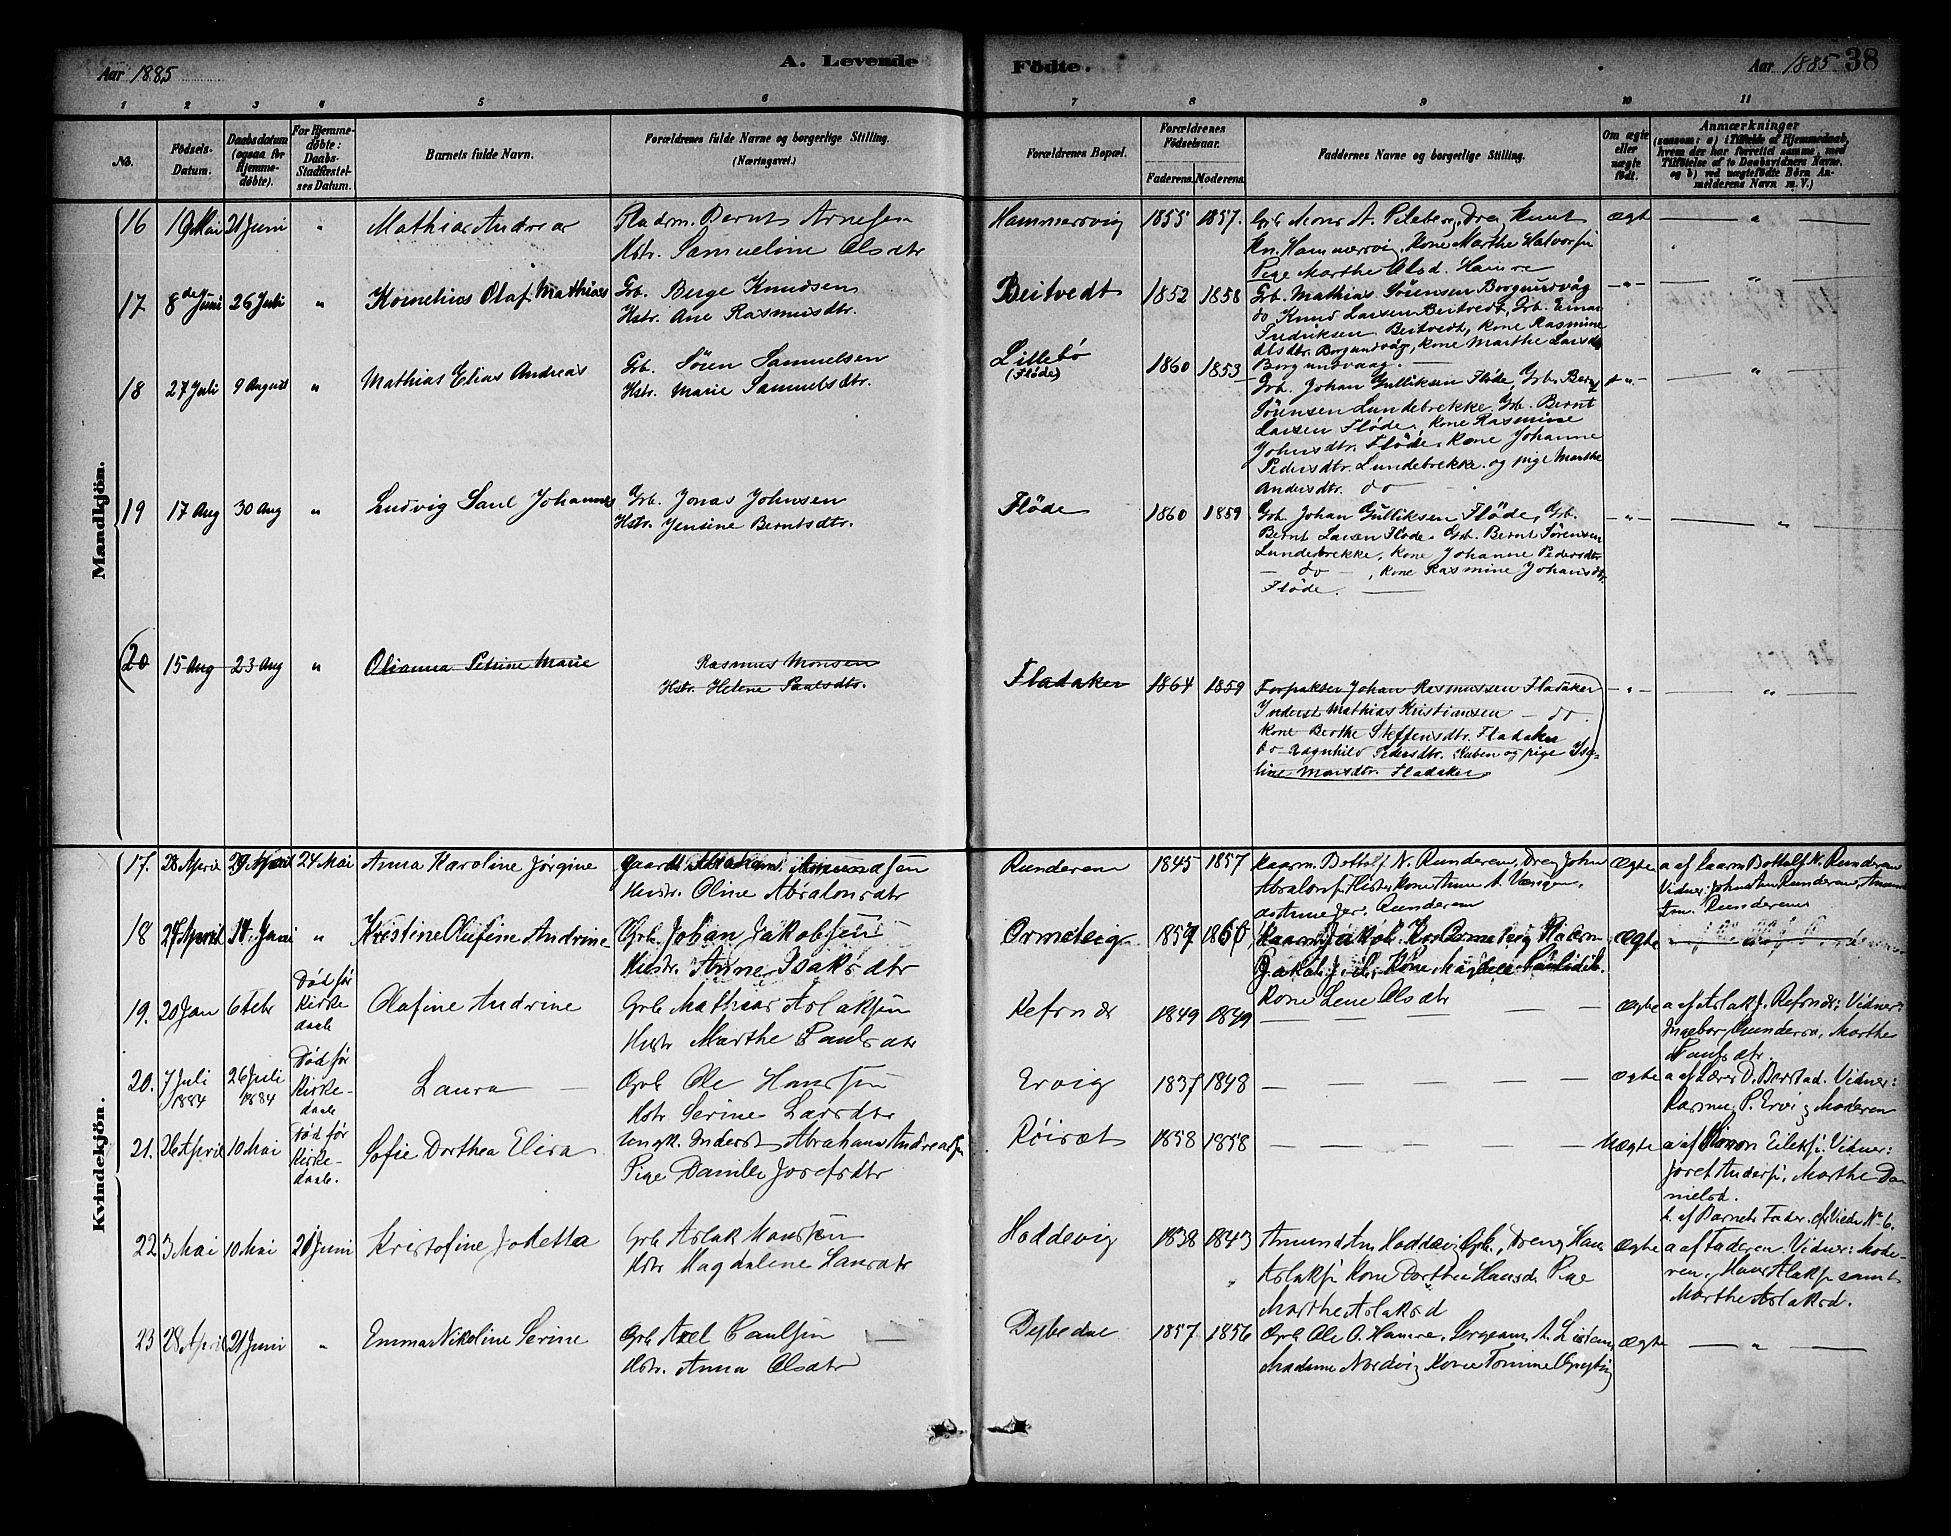 Aar 1885
A. Levende
Födte.
Aar 1885 38
1 2 3 4 5 6 7 8 9 10 11
No.
Födsels-
Datum.
Daabsdatum
(ogsaa for
Hjemme-
døbte).
For Hjemme-
døbte:
Daabs-
Stadfæstel-
ses Datum.
Barnets fulde Navn.
Forældrenes fulde Navne og borgerlige Stilling.
(Næringsvei.)
Forældrenes Bopæl.
Forældrenes
Födselsaar.
Faderens Moderens
Faddernes Navne og borgerlige Stilling.
Om ægte
eller
uægte
født.
Anmærkninger
(saasom: a) i Tilfælde af Hjemmedaab,
hvem der har forrettet samme, med
Tilföielse af to Daabsvidners Navne,
og b) ved uægtefödte Börn An-
melderens Navn m. V.)
Mandkjön.
16 19 Mai 21 Juni " Mathias Andreas
Bernt Arnesen
Hstr. Samueline Olsdtr
Hammersvig 1855 1857. Grb Mons A. Pileberg, Dreg Knut
Kn. Hammersvig, Kone Marthe Halvorsd
Pige Marthe Olsd. Hamre
ægte — " —
17 8de Juni 26 Juli " Kornelius Olaf Mathias
Grb. Berge Knudsen
Hstr. Ane Rasmusdtr.
Beitvedt 1852 1858 Grb. Mathias Sörensen Borgundvåg
do Knud Larsen Beitvedt, Grb. Einar
Fredriksen Beitvedt, Kone Rasmine
Olsdtr. Borgundvåg, Kone Marthe Larsdtr
Borgundvaag.
— " — — " —
18 27 Juli 9 August " Mathias Elias Andreas
Grb. Sören Samuelsen
Hstr. Marie Samuelsdtr.
Lillebö
(Flöde)
1860 1853 Grb. Johan Gulliksen Flöde, Grb. Bernt
Sörensen Lundebrekke, Grb. Bernt
Larsen Flöde, Kone Rasmine
Johnsdtr. Flöde, Kone Johanne
Pedersdtr. Lundebrekke og pige Marthe
Andersdtr. do —
— " — — " —
19 17 Aug 30 Aug " Ludvig Saul Johannes
Grb. Jonas Johnsen
Hstr. Jensine Berntsdtr.
Flöde 1860 1859 Grb. Johan Gulliksen Flöde, Grb.
Bernt Larsen Flöde, Grb. Bernt Sörensen
Lundebrekke, Kone Johanne Pedersdtr
— do — , Kone Rasmine Johansdtr.
Flöde. —
— " — — " —
(20 15 Aug 23 Aug " Olianna Petrine Marie
Rasmus Monsen
Hstr. Helene Paulsdtr.
Fladaker 1864 1859 Forpakter Johan Rasmussen Fladaker
Inderst Mathias Kristiansen — do.
Kone Berthe Steffensdtr. Fladaker
do Ragnhild Pedersdtr. Kuben og pige Ise-
line Monsdtr. Fladaker)
— " — — " —
Kvindekjön.
17. 28 April 29 April 24 Mai Anna Karoline Jørgine
Gaardm Abraham Amundsen
Hustr. Oline Absalonsdtr
Runderem 1845 1857 Kaarm. Bottolf N. Runderem, Dreg John
do Anne Jør. Runderem
Ægte a af Kaarm Bottolf N. Runderem
Vidner: John Am Runderem, Amund
Am. Runderem
18 27 April 14 Juni " Kristine Olufine Andrine
Grb. Johan Jakobsen
Hustr. Anne Isaksdtr
Ormeleig 1857 1860 Kaarm Jakob Kr. Ormeleig
Kone Lene Olsdtr
Ægte
19. 20 Jan 6 Febr Død før
Kirke-
daab
Olafine Andrine
Grb Mathias Aslaksen
Hustr Marthe Paulsdtr
Refsnes 1849 1849 — — — — —
Ægte a af Aslak J. Refsnes; Vidner:
Ingebor Gundersd, Marthe
Paulsdtr.
20. 7 Juli
1884
26 Juli
1884
Død før
Kirke-
daab
Laura —
Grb Ole Hansen
Hstr Serine Larsdtr
Ervig 1837 1848 — — — — —
Ægte a af Lærer D. Berstad. Vidner:
Rasmus P. Ervig Moderen
21. 26 April 10 Mai Død før
Kirke-
daab.
Sofie Dorthea Elisa
Ungk. Inderst Abraham Andreassen
Pige Damile Josefsdtr
Røiset 1858 1858 — — — — —
Uægte a af Simon Eileksen. Vidner:
Josef Andersen, Marthe Da-
nielsd.
b. af Barnets Fader. cfr Viede No 6.
22 3 Mai 10 Mai 21 Juni Kristofine Jaketta
Grb Aslak Hansen
Hstr Magdalene Larsdtr
Hoddevig 1838 1843 Amund Am Hoddevig Grb., Dreng Hans
Aslaks. Kone Dorthea Hansd. Pige
Marthe Aslaksd
Ægte a af Faderen. Vidner: Mode-
ren, Hans Aslaks samt
Marthe Aslaksd.
23 28 April 21 Juni " Emma Nikoline Serine
Grb Axel Paulsen —
Hstr. Anna Olsdtr
Dybedal 1857 1856 Grb Ole O. Hamre, Sergeant A. Listau,
Madame Nordvig Kone
Ægte — " —